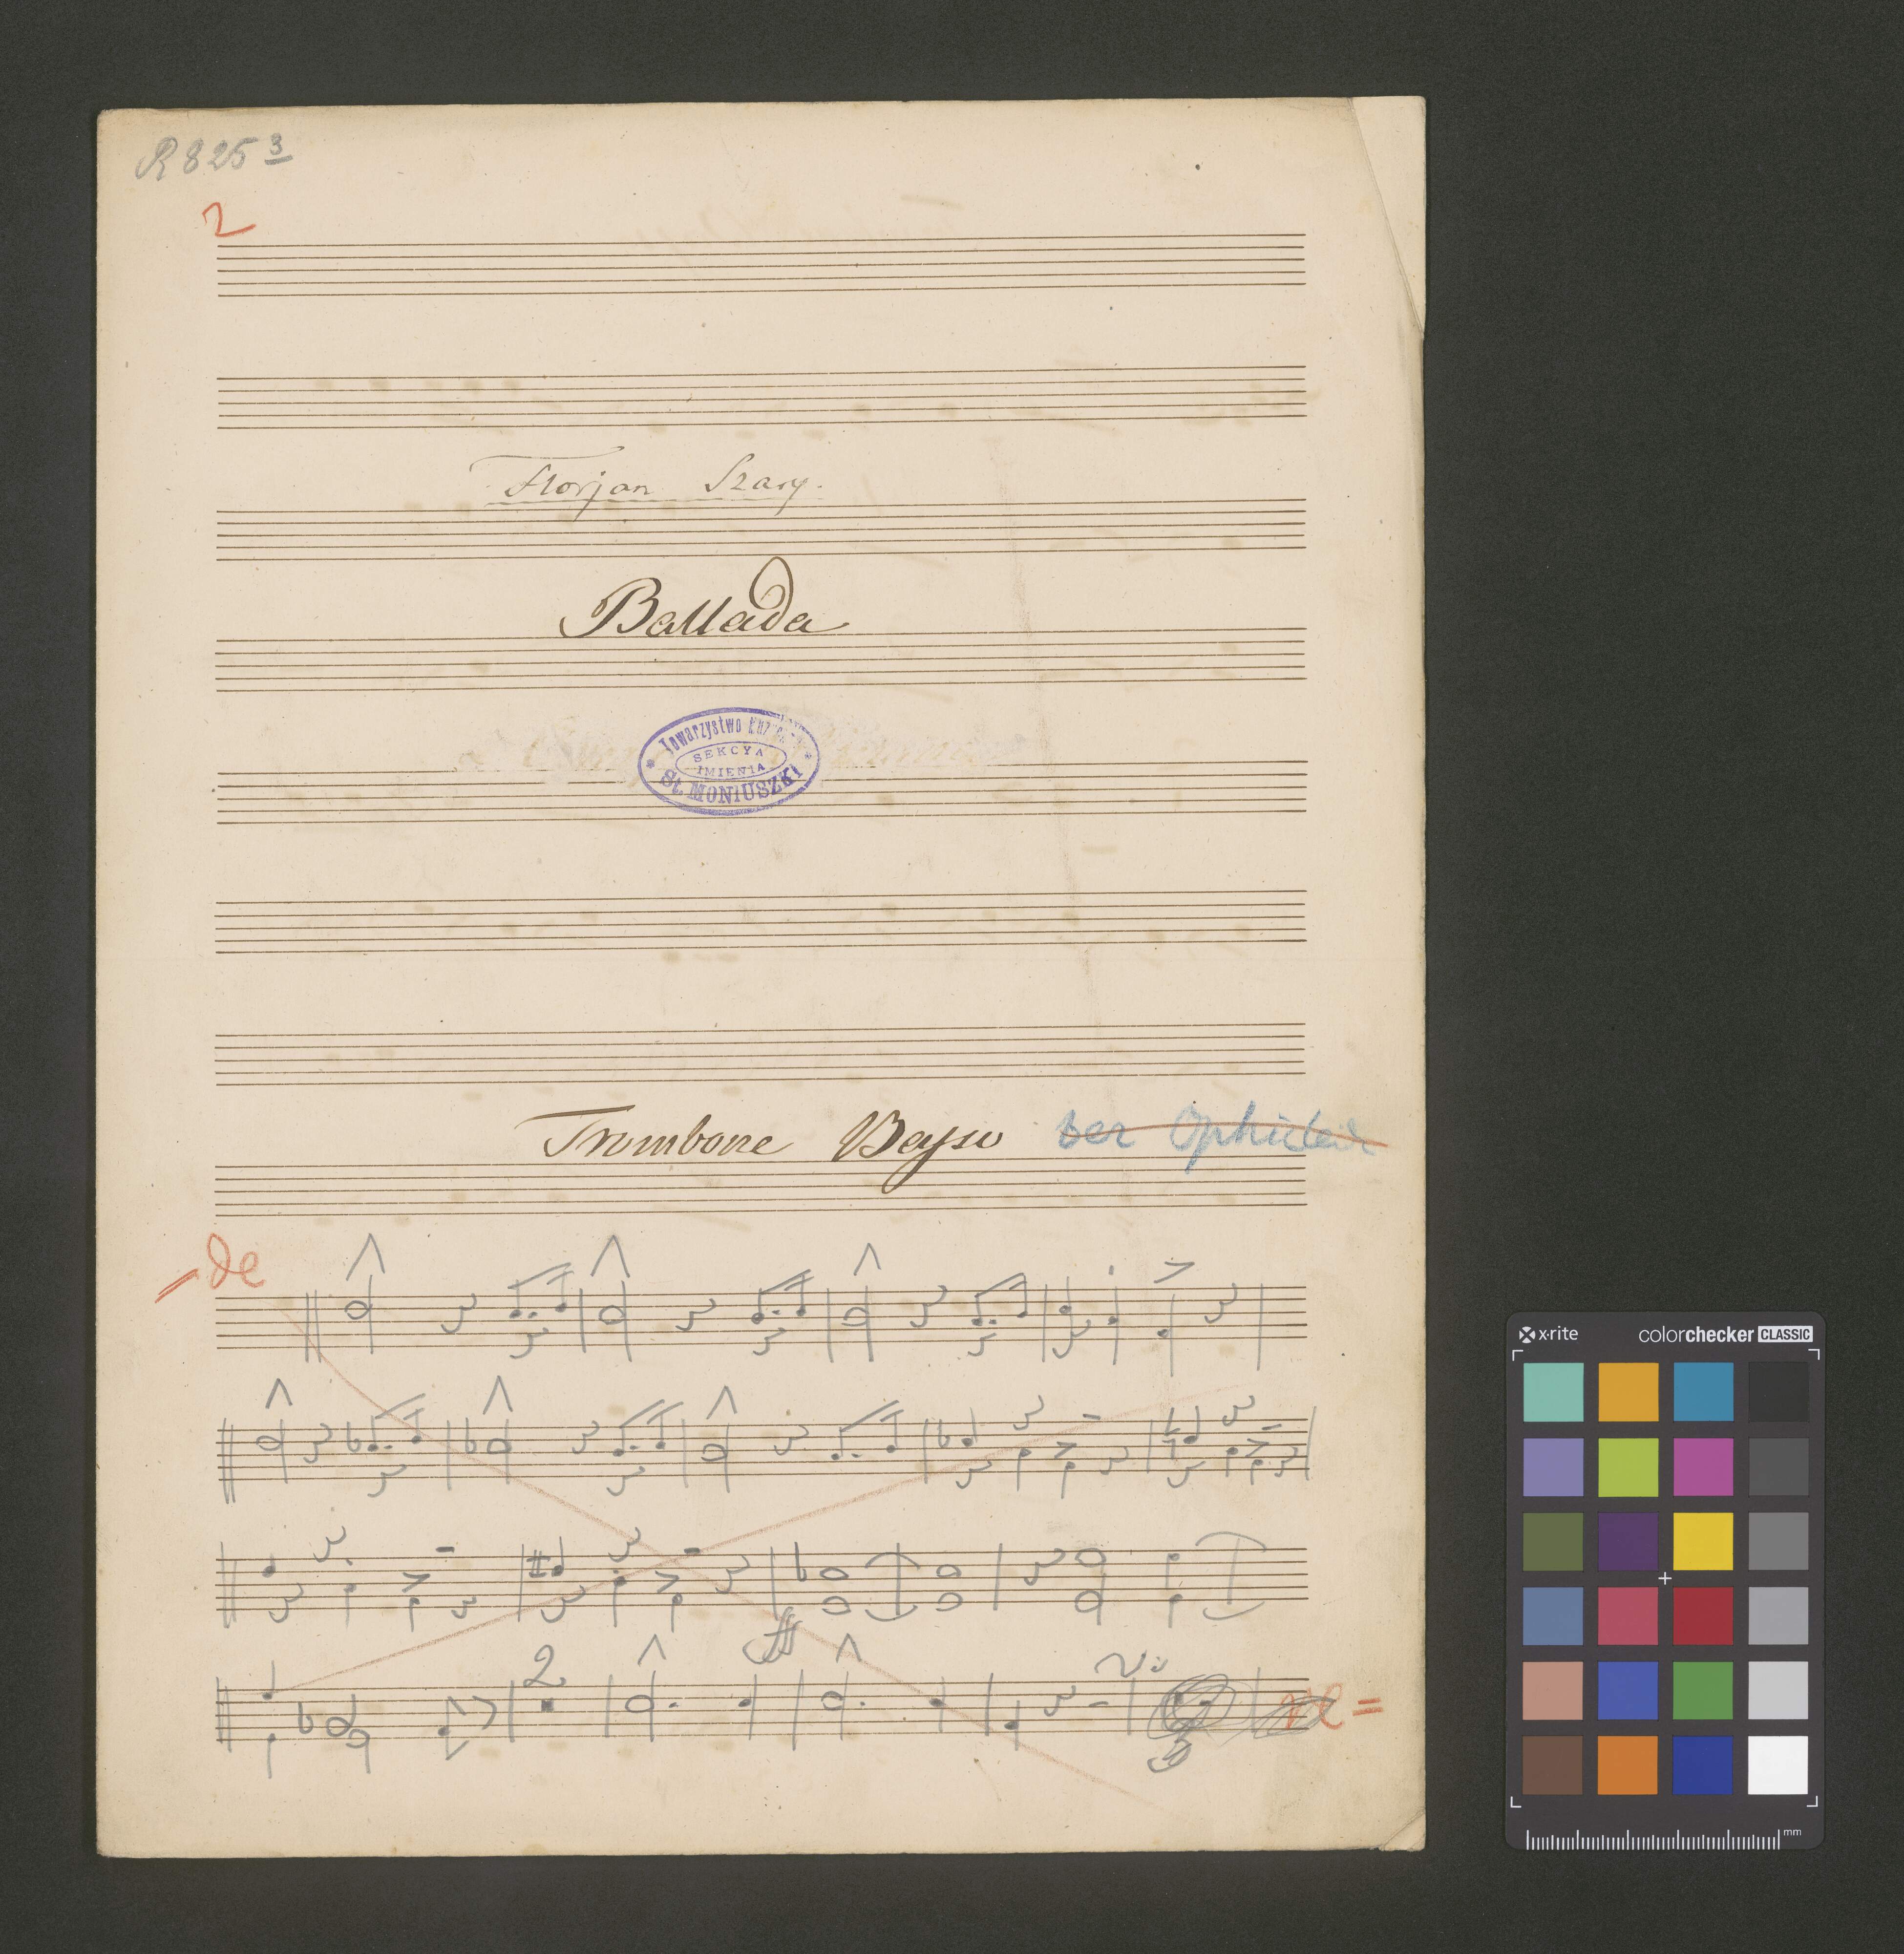 R 825 3
2
Florjan Szary.
Ballada
Towarzystwo
SEKCYA
IMIENIA
St. MONIUSZKI
Trombone Basso
de
2
x-rite colorchecker CLASSIC
mm